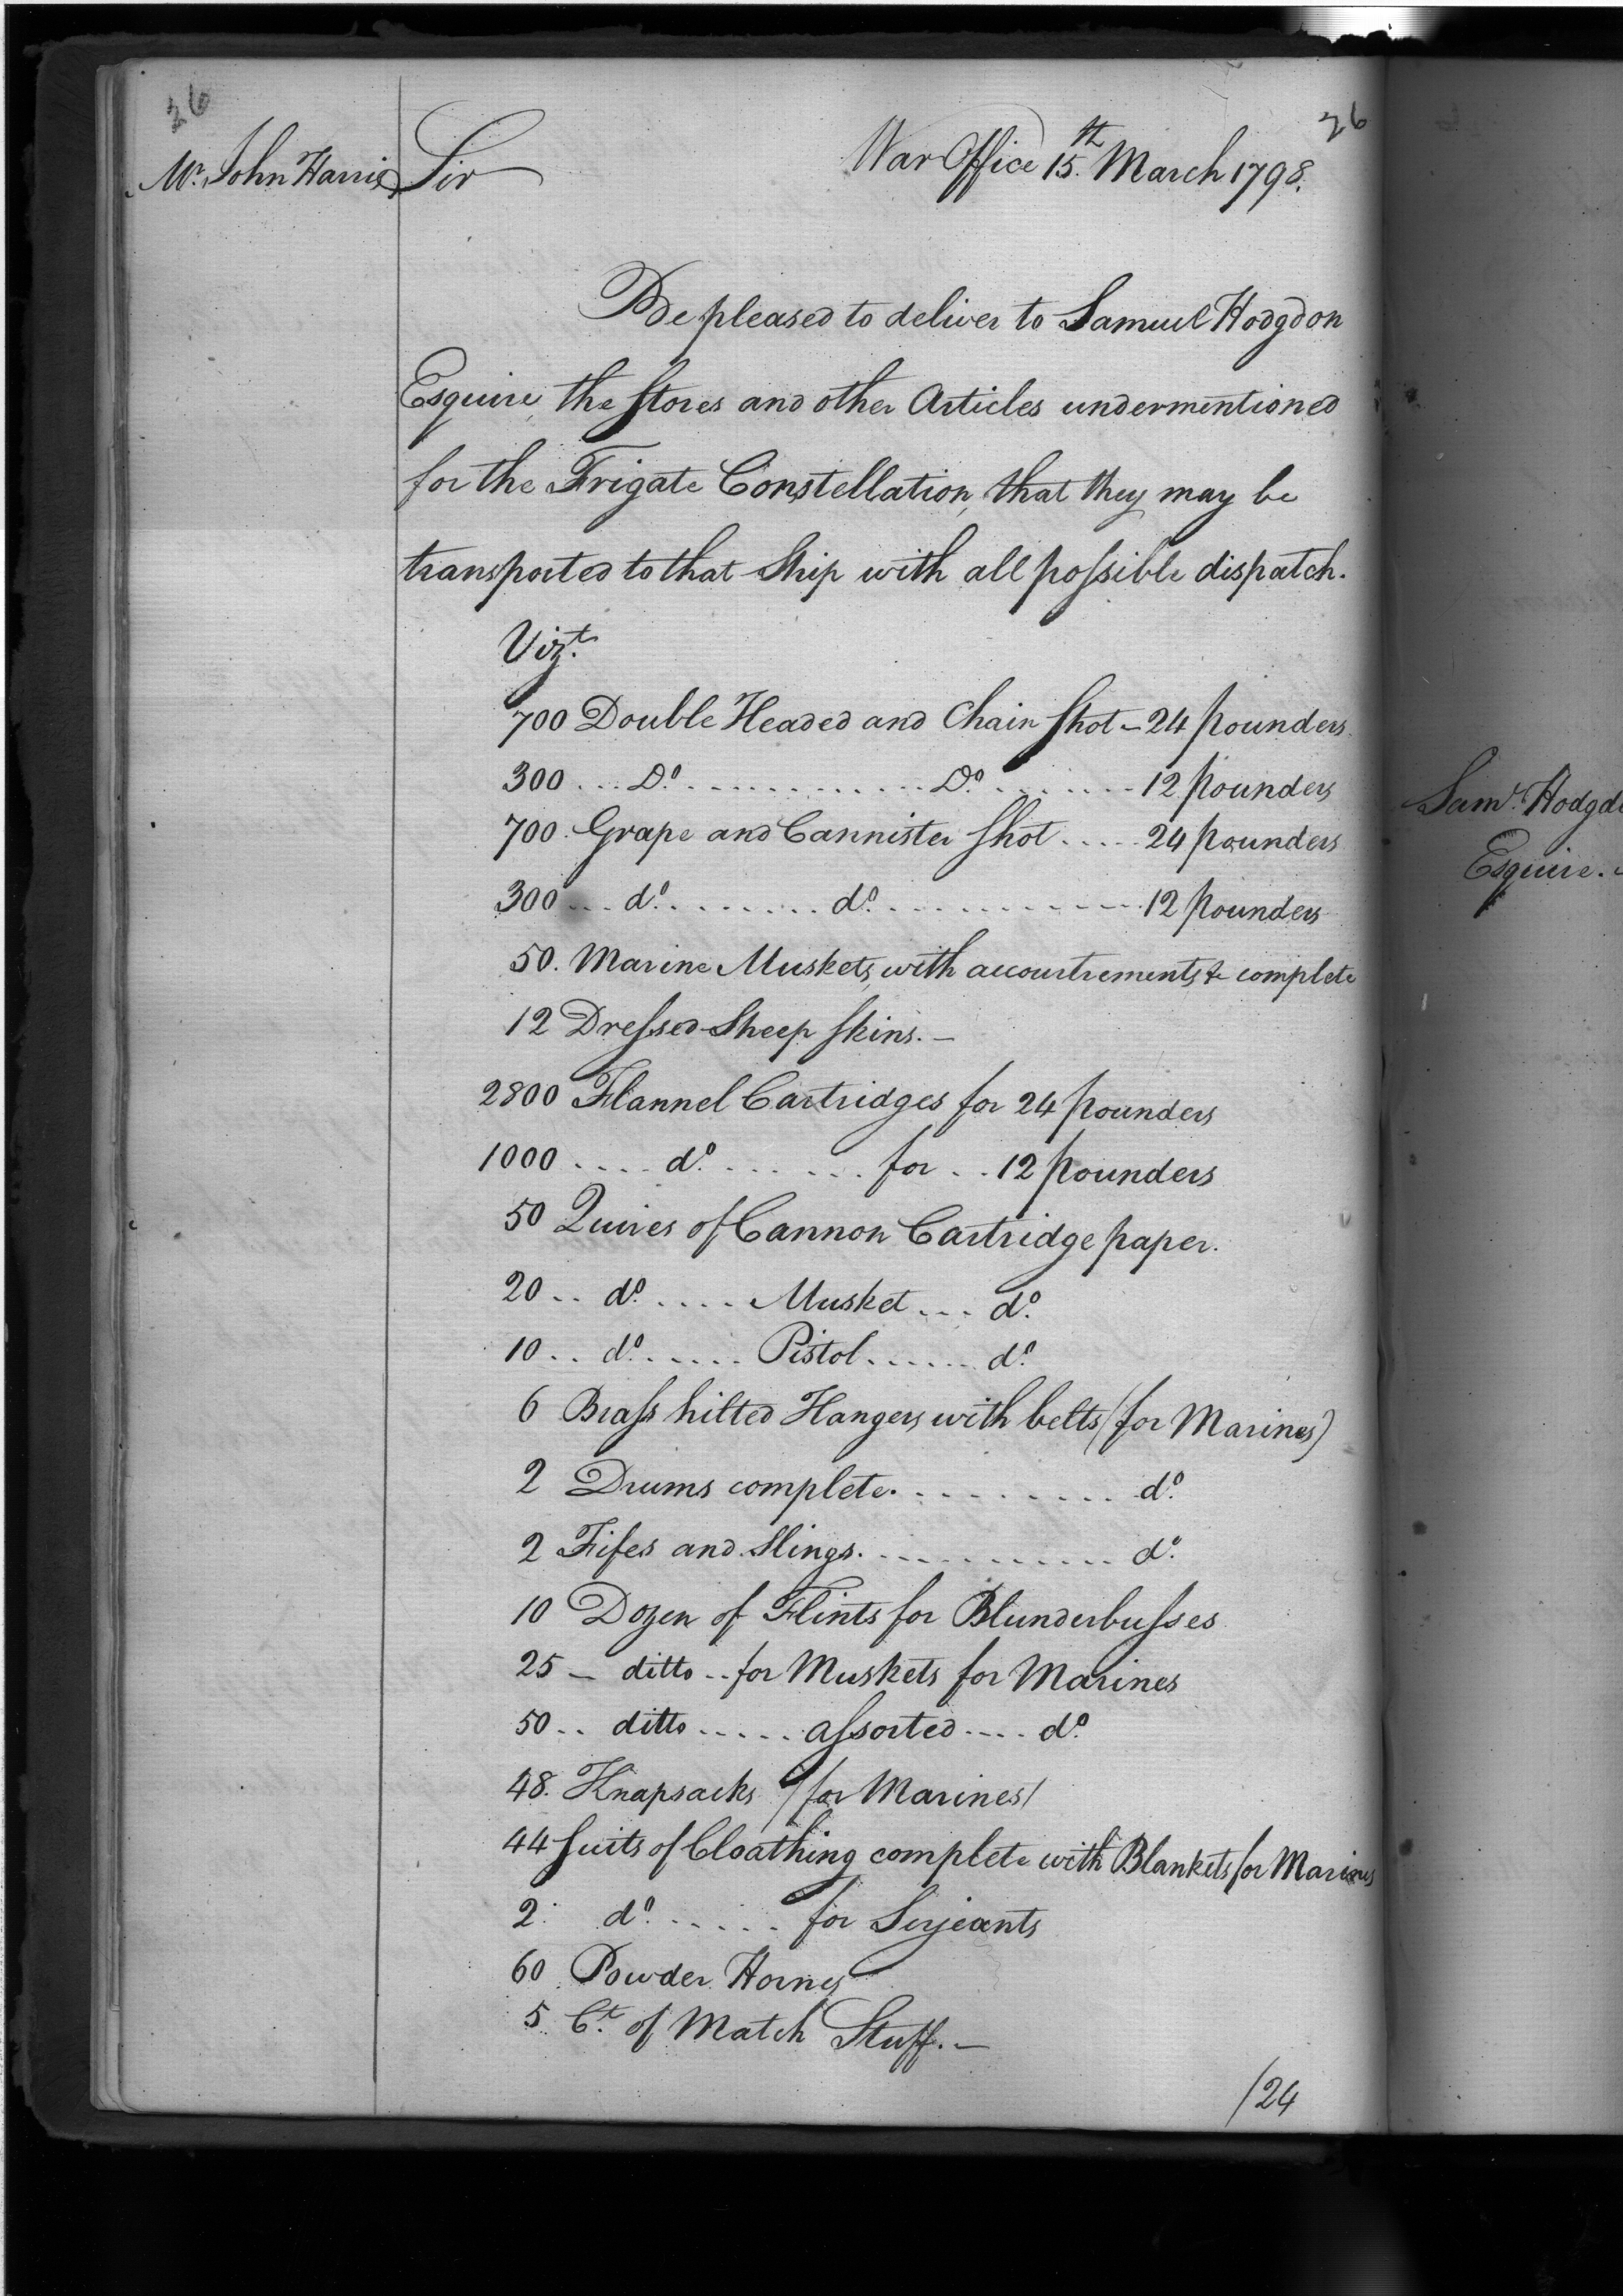 26
26
Mr. John Harris
Sir
War Office 15th. March 1798.
Be pleased to deliver to Samuel Hodgdon
Esquire, the Stores and other Articles undermentioned
for the Frigate Constellation, that they may be
transported to that Ship with all possible dispatch.
Vizt.
700 Double Headed and Chain Shot - 24 pounders
300 ... Do. ............ Do. ....... 12 pounders
700. Grape and Cannister Shot ..... 24 pounders
300 ... do. ........ do. ............ 12 pounders
50. Marine Muskets, with accoutrements &c complete
12 Dressed Sheep Skins. -
2800 Flannel Cartridges for 24 pounders
1000 .... do. ....... for .. 12 pounders
50 Quires of Cannon Cartridge paper.
20 .. do. .... Musket ... do.
10 .. do. ..... Pistol ...... do.
6 Brass hilted Hangers with belts (for Marines)
2 Drums complete. ......... do.
2 Fifes and Slings. ........... do.
10 Dozen of Flints for Blunderbusses
25 - ditto .. for Muskets for Marines
50 .. ditto ..... assorted .... do.
48. Knapsacks /for Marines/
44 Suits of Cloathing complete with Blankets for Marines
2. do. ..... for Serjeants
60 Powder Horns
5 Ct. of Match Stuff. -
/24
Saml. Hodgd
Esquire.